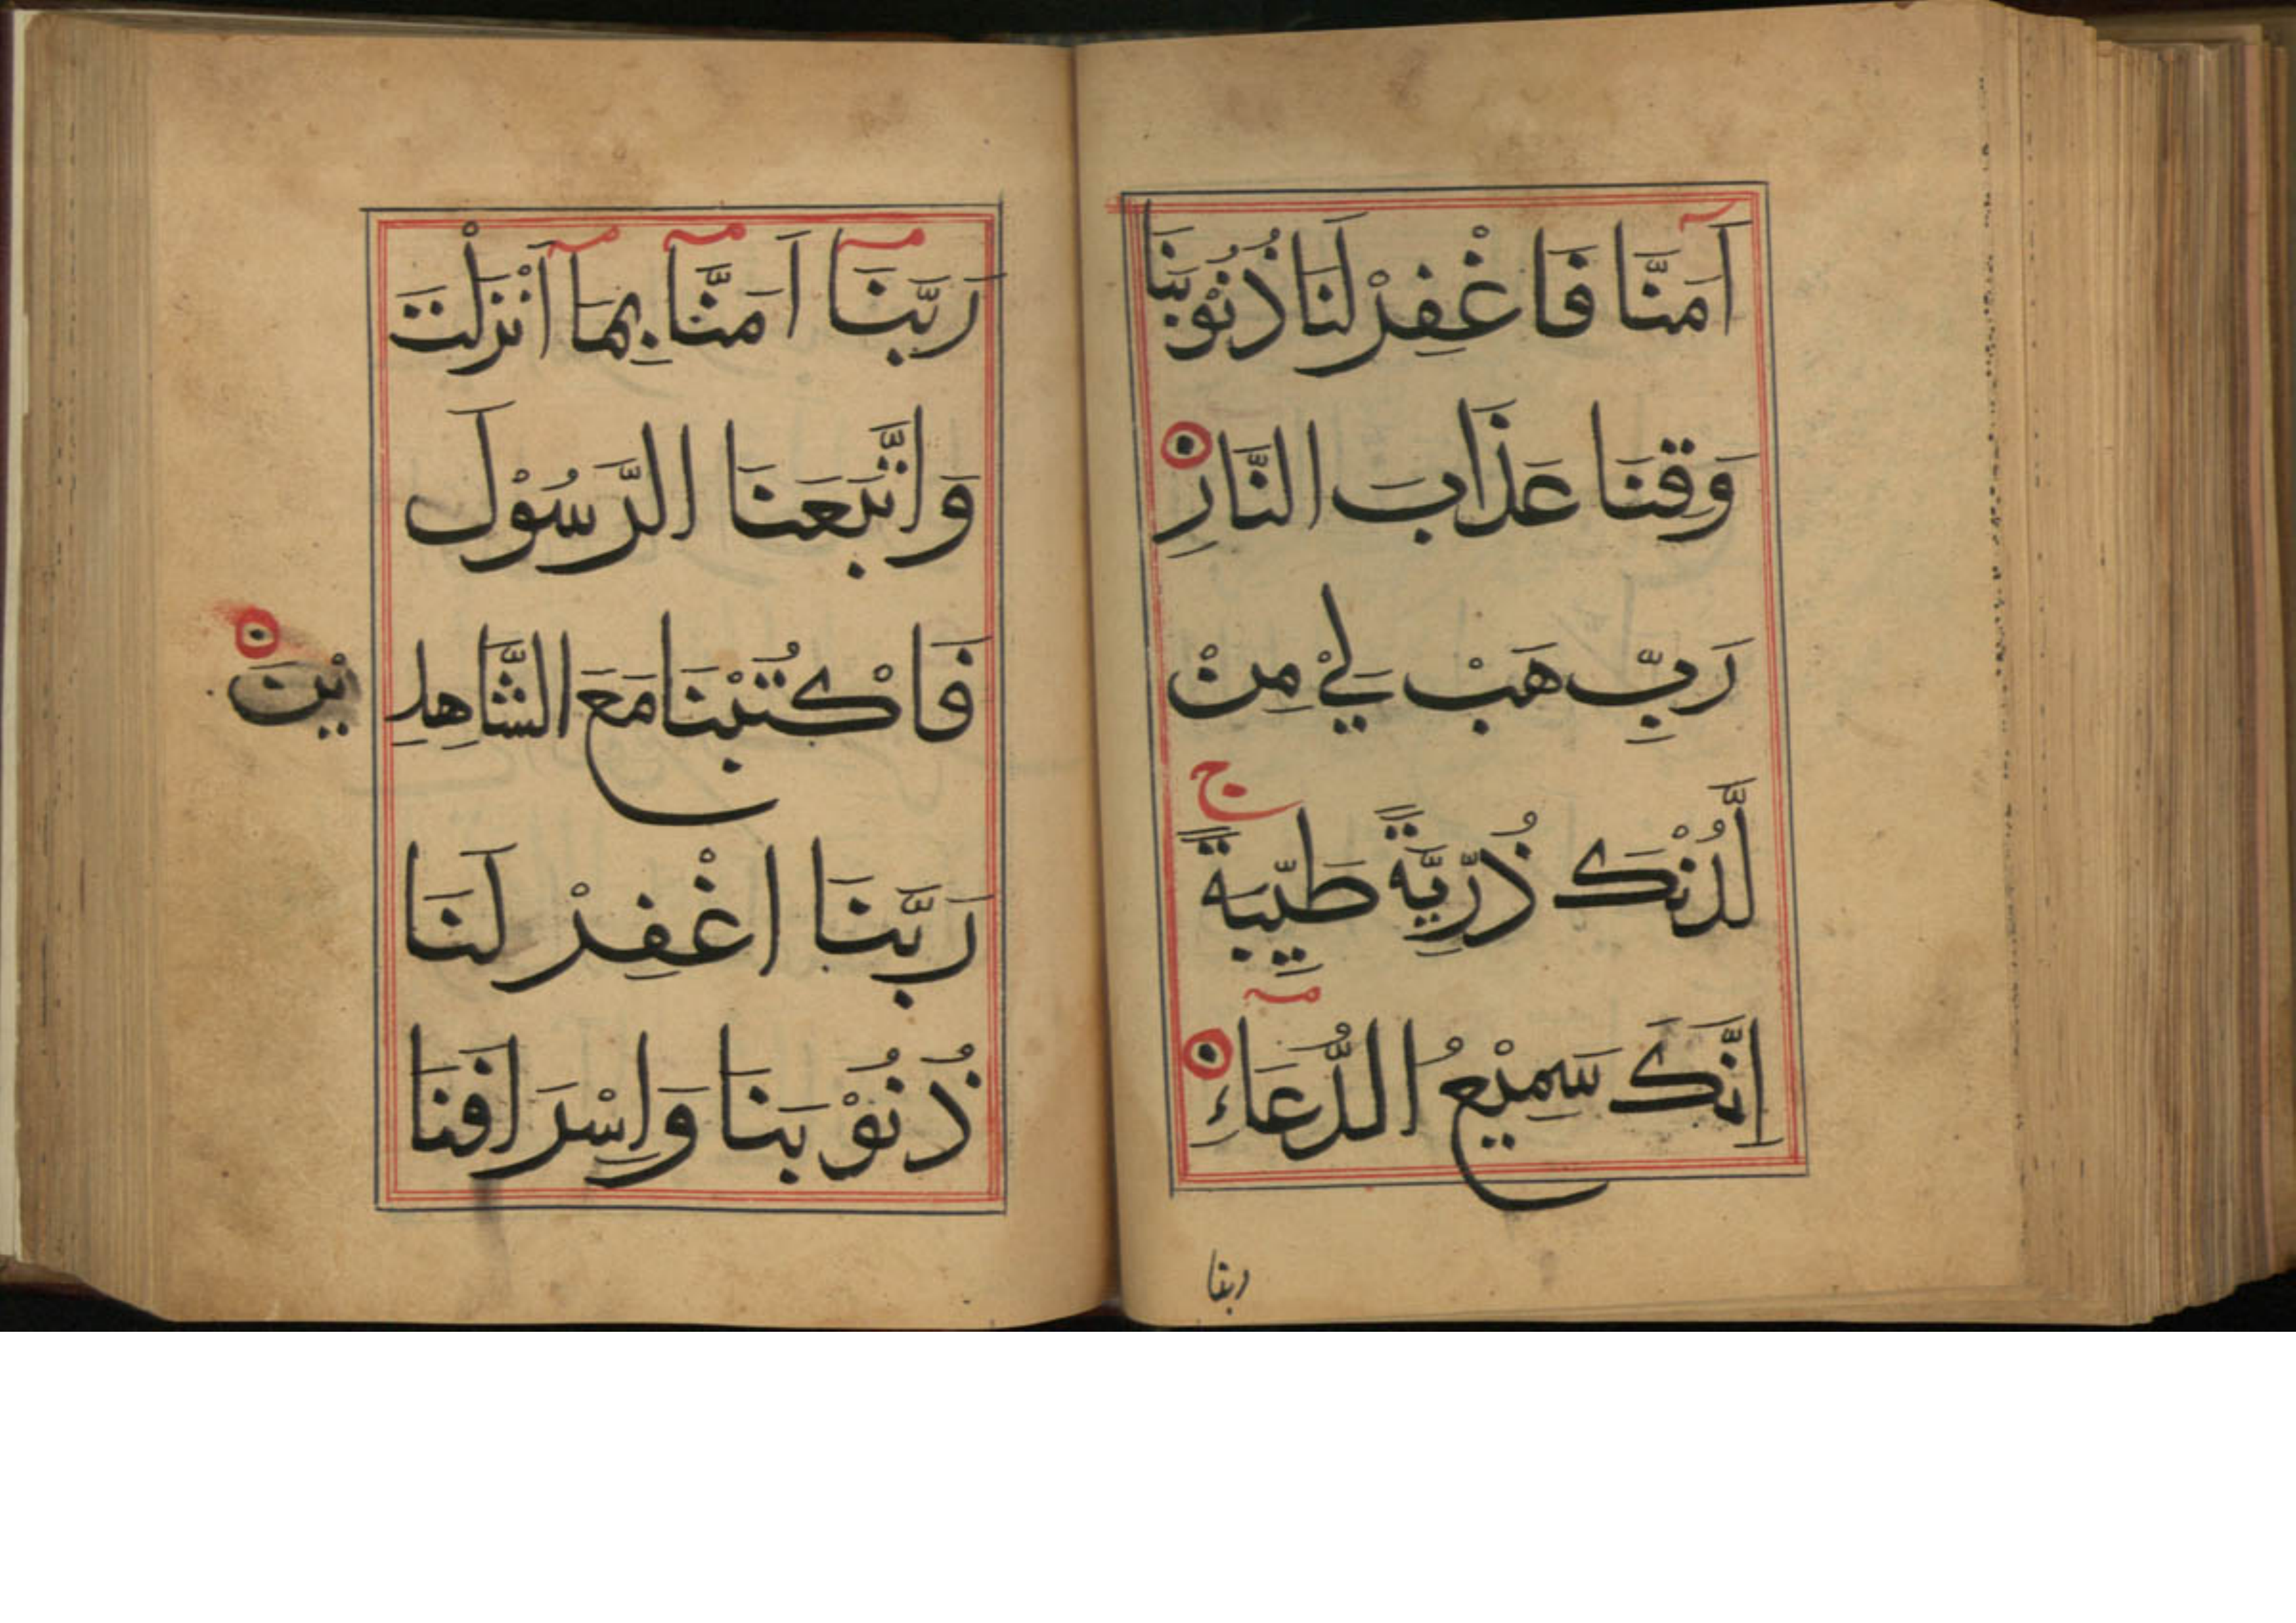 اَمَنَّا فَاغْفِرْ لَنَا ذُنُوْبَنَا
وَقِنَا عَذَابَ النَّارِ
رَبِّ هَبْ لِيْ مِنْ
لَّدُنْكَ ذُرِّيَّةً طَيِّبَةً ج
اِنَّكَ سَمِيْعُ الدُّعَاءِ
ربنا
رَبَّنَا اَمَنَّا بِمَا اَنْزَلْتَ
وَاتَّبَعْنَا الرَّسُوْلَ
فَاكْتُبْنَا مَعَ الشَّاهِدِيْنَ
رَبَّنَا اغْفِرْ لَنَا
ذُنُوْبَنَا وَاِسْرَافَنَا